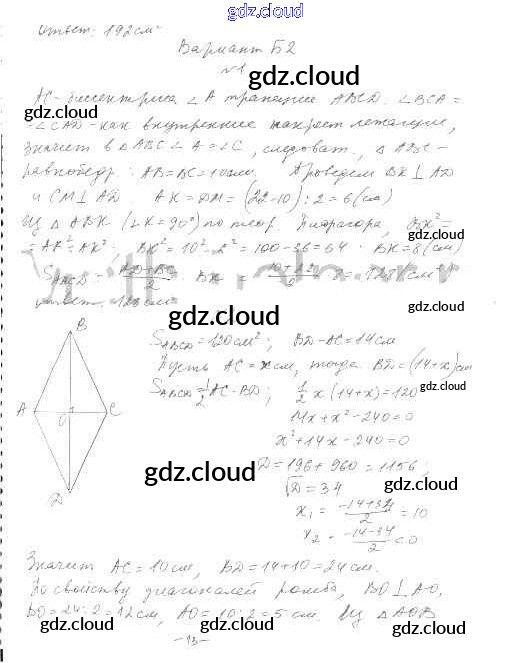 gdz.cloud
Ответ: 192 см²
Вариант Б2
№1
gdz.cloud
АС - биссектриса ∠А трапеции ABCD. ∠BCA =
= ∠CAD - как внутренние накрест лежащие,
gdz.cloud gdz.cloud
значит в △ABC ∠A = ∠C, следоват., △ABC -
равнобедр. AB = BC = 10 см. Проведем BK ⊥ AD
и CM ⊥ AD. AK = DM = (22-10) : 2 = 6 (см)
gdz.cloud
Из △ABK (∠K = 90°) по теор. Пифагора, BK² =
= AB² - AK²; BK² = 10² - 6² = 100 - 36 = 64. BK = 8 (см)
S ABCD = (AD+BC)/2 · BK = (10+22)/2 · 8 = 128 (см²)
gdz.cloud
Ответ: 128 см²
B
S ABCD = 120 см²; BD - AC = 14 см
gdz.cloud
Пусть AC = x см, тогда BD = (14+x) см
S ABCD = 1/2 AC · BD; 1/2 x (14+x) = 120
gdz.cloud
A O C
14x + x² - 240 = 0
x² + 14x - 240 = 0
gdz.cloud
D = 196 + 960 = 1156;
gdz.cloud
√D = 34
D
x₁ = (-14+34)/2 = 10
gdz.cloud
x₂ = (-14-34)/2 < 0
Значит AC = 10 см, BD = 14 + 10 = 24 см.
По свойству диагоналей ромба, BO ⊥ AO,
BO = 24 : 2 = 12 см, AO = 10 : 2 = 5 см. Из △AOB
gdz.cloud gdz.cloud
- 13 -
gdz.cloud